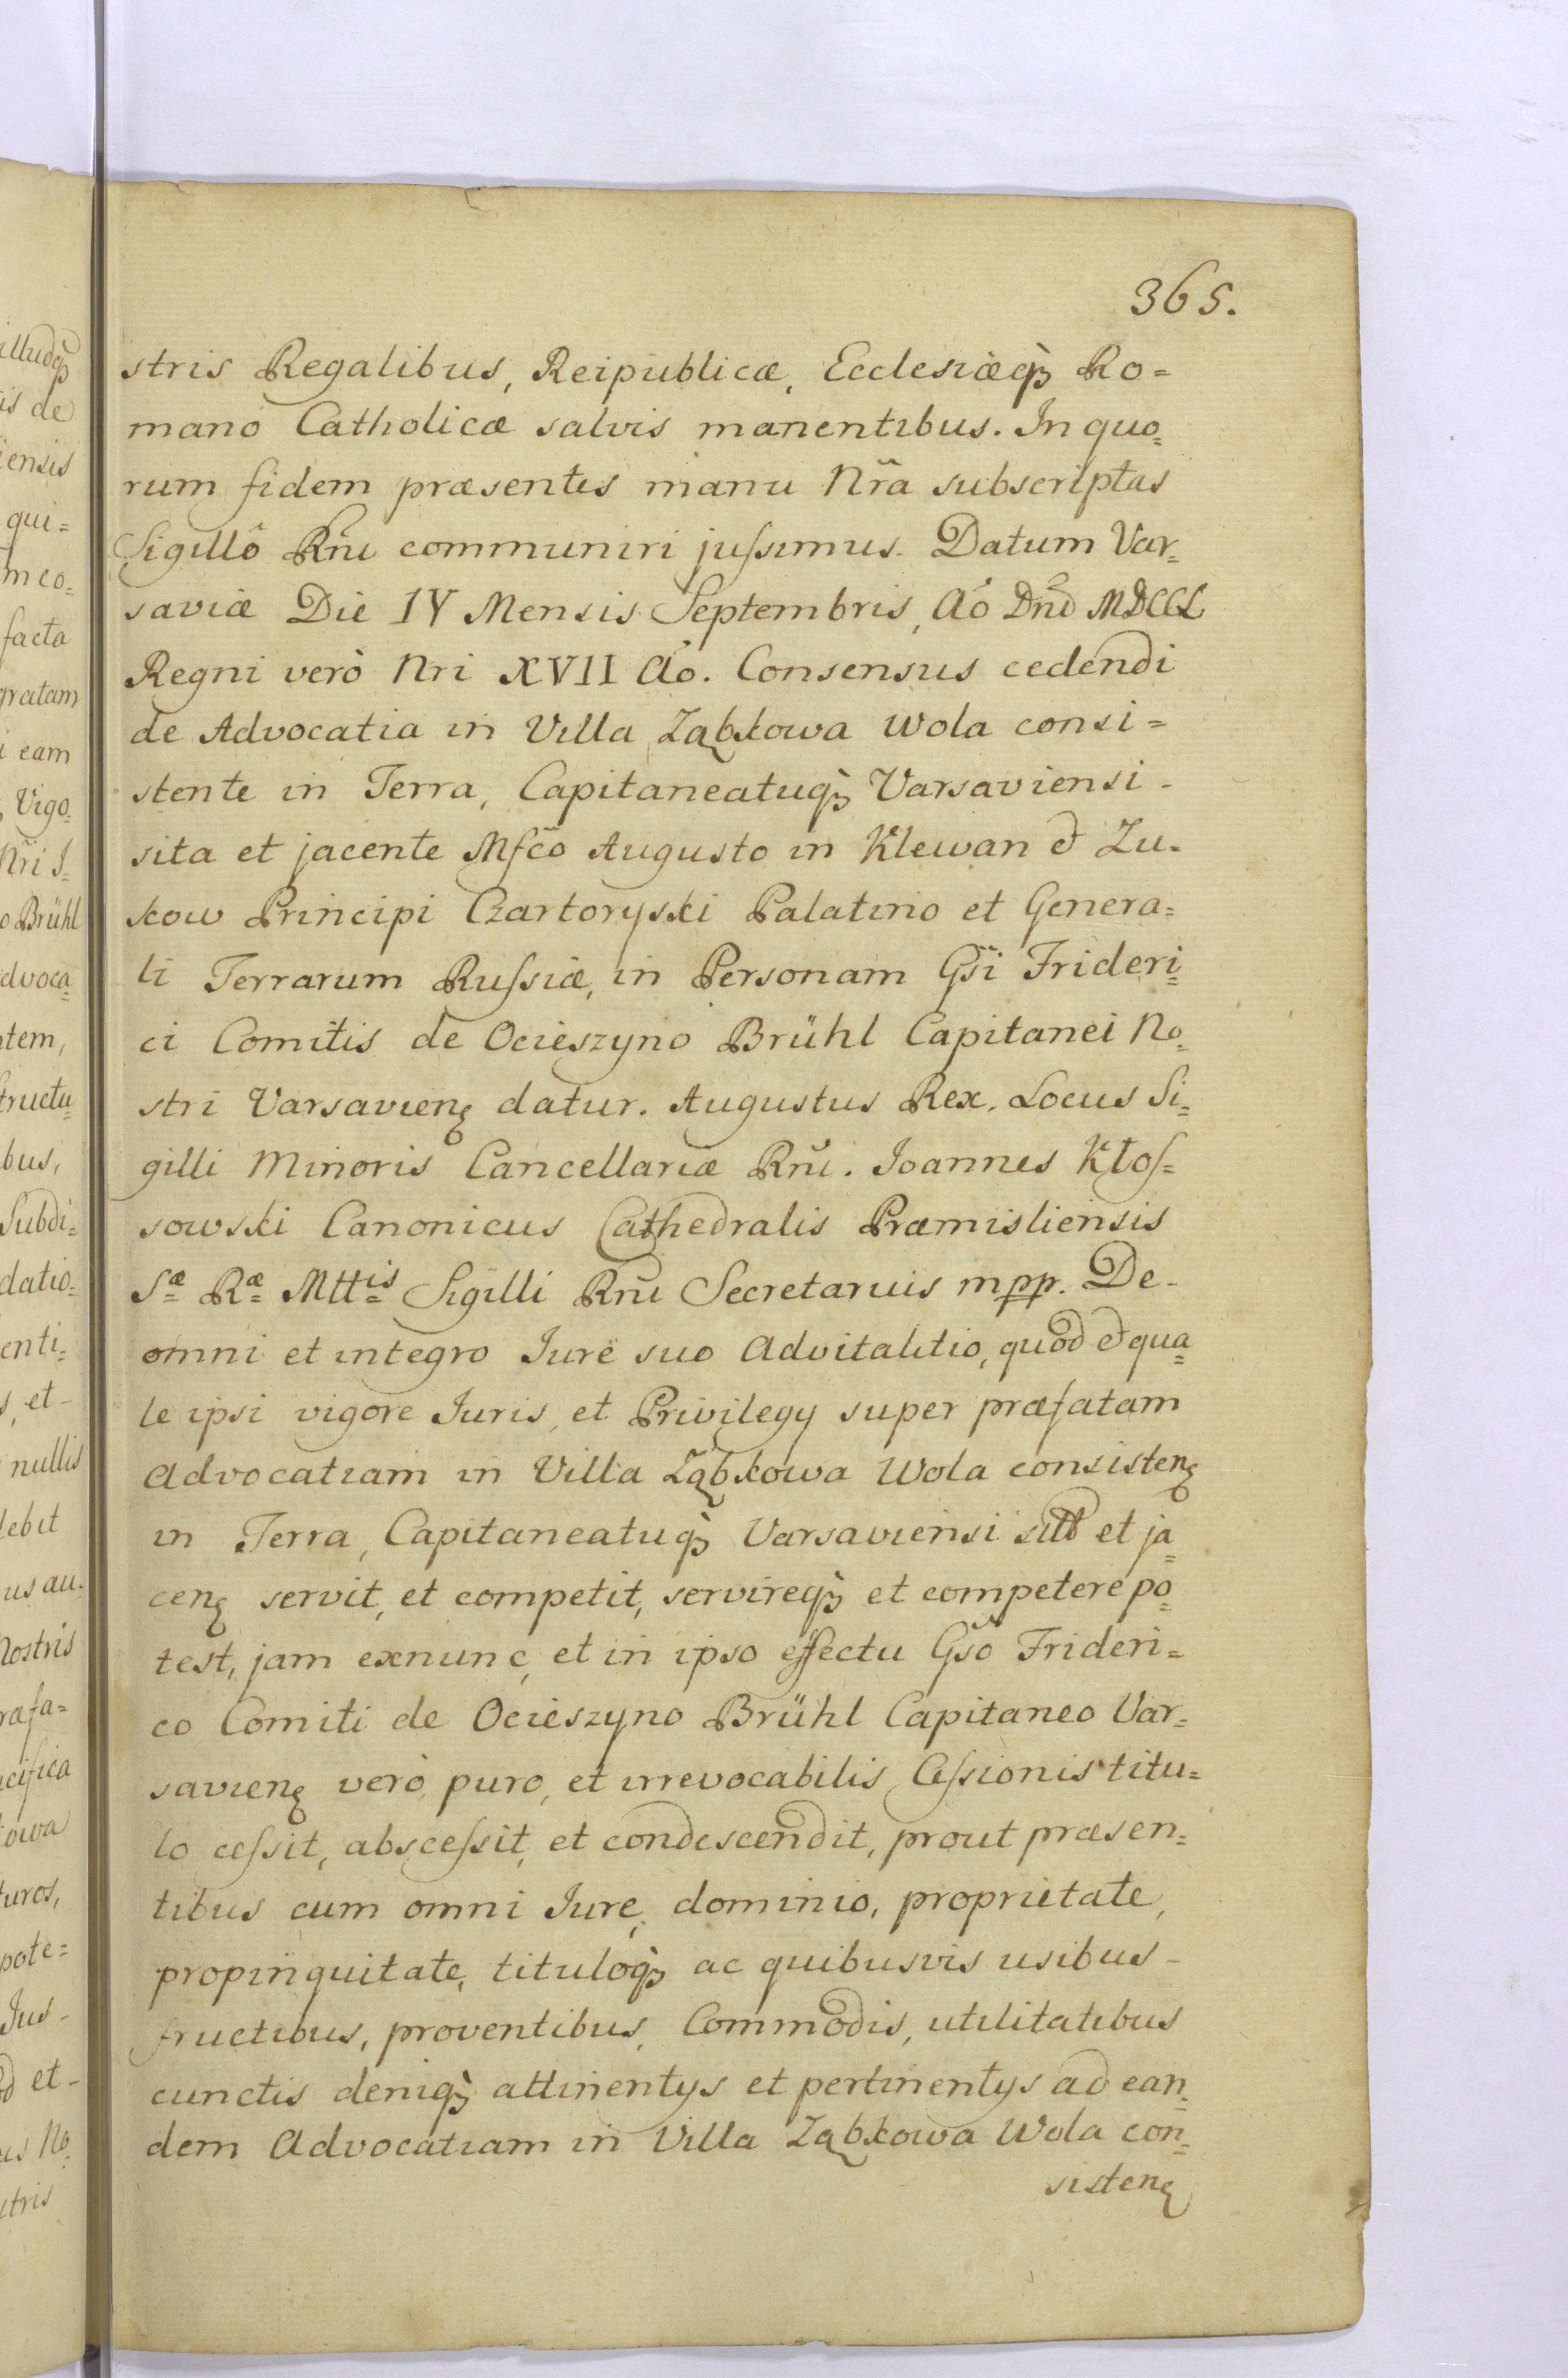 365.
stris Regalibus, Reipublicæ, Ecclesiæq₃ Ro=
mano Catholicæ salvis manentibus. In quo=
rum fidem præsentes manu Nr̃a subscriptas
Sigillô Rñi communiri jussimus. Datum Var=
saviæ Die IV Mensis Septembris, Aõ Dñi MDCCL
Regni verò Nri XVII Aõ. Consensus cedendi
de Advocatia in Villa Ząbkowa Wola consi=
stente in Terra, Capitaneatuq₃ Varsaviensi -
sita et jacente Mfco Augusto in Klewan & Zu=
kow Principi Czartoryski Palatino et Genera=
li Terrarum Russiæ, in Personam Gsi Frideri=
ci Comitis de Ocieszyno Brühl Capitanei No=
stri Varsavienę datur. Augustus Rex. Locus Si=
gilli Minoris Cancellariæ Rñi. Joannes Kłos=
sowski Canonicus Cathedralis Præmisliensis
Sæ Ræ Mttis Sigilli Rñi Secretarius mpp. De-
omni et integro Jure suo Advitalitio, quod & qua=
le ipsi vigore Juris, et Privilegy super præfatam
Advocatiam in Villa Ząbkowa Wola consistenę
in Terra, Capitaneatuq₃ Varsaviensi sitt et ja=
cenę servit, et competit, servireq₃ et competere po=
test, jam exnunc, et in ipso effectu Gso Frideri=
co Comiti de Ocieszyno Brühl Capitaneo Var=
savienę verò, puro, et irrevocabilis Cessionis titu=
lo cessit, abscessit, et condescendit, prout præsen=
tibus cum omni Jure, dominio, proprietate,
propinquitate, tituloq₃ ac quibusvis usibus -
fructibus, proventibus, Commodis, utilitatibus
cunctis deniq₃ attinentys et pertinentys ad ean=
dem Advocatiam in Villa Ząbkowa Wola con=
sistenę